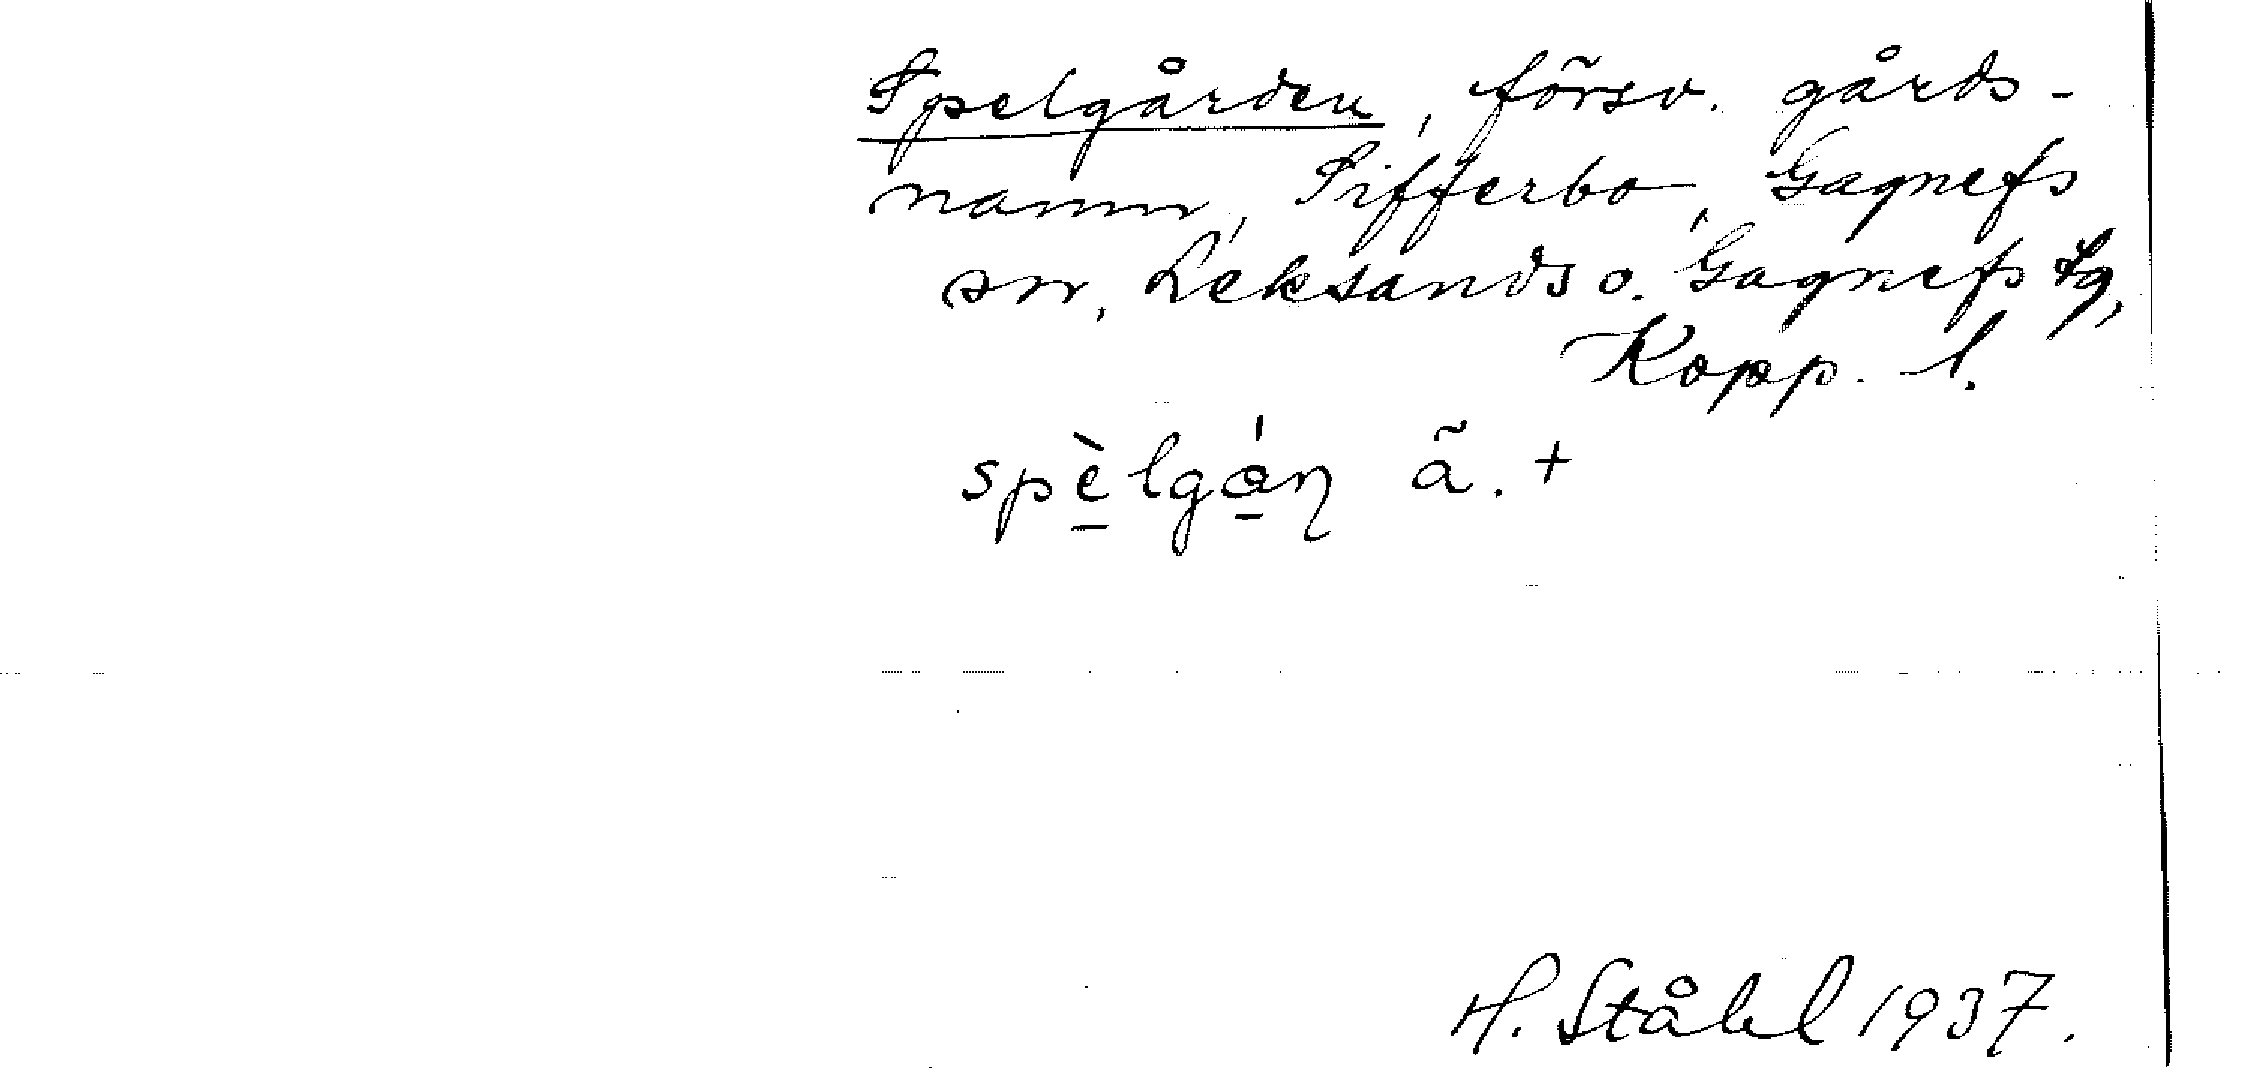 Spelgården, försv. gårds-
namn, Sifferbo, Gagnefs
sn, Leksands o. Gagnefs tg,
Kopp. l.
spè̱lgá̱ŋ ã. +
H. Ståhl 1937.